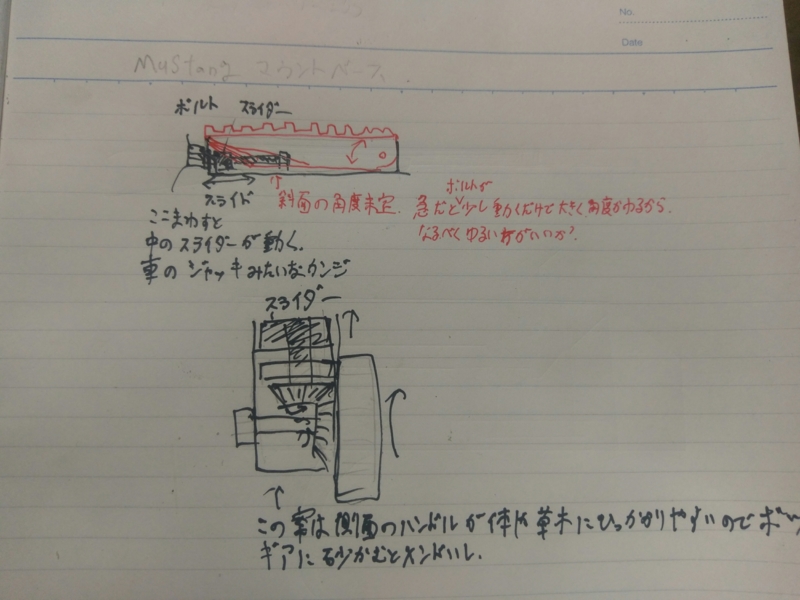 No.
Date
Mustang マウントベース
ボルト スライダー
スライド
斜面の角度未定. 急だと少し動くだけで大きく角度かわるから.
ボルトが
なるべくゆるい方がいいか?
ここまわすと
中のスライダーが動く.
車のジャッキみたいなカンジ
スライダー
この案は側面のハンドルが体や草木にひっかかりやすいのでボツ
ギアに砂かむとメンドいし.